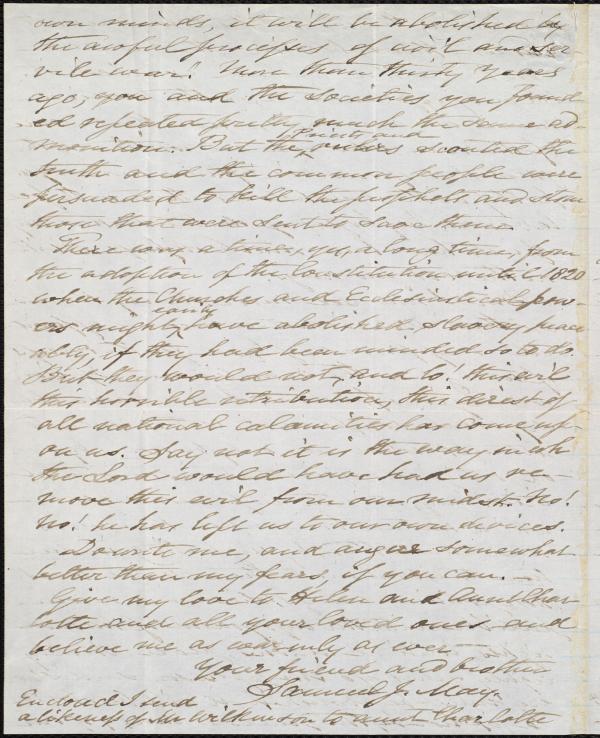 own minds, it will be abolished by
the awful processes of civil and ser-
vile war! More than thirty years
ago, you and the societies you found-
ed repeated forth much the same ad-
monition. But the priests and rulers scouted the
truth and the common people were
persuaded to kill the prophets and stone
those that were sent to save them.
There was a time, yes, a long time, from
the adoption of the Constitution until 1820
when the Churches and Ecclesiastical pow-
ers might easily have abolished slavery peace
ably, if they had been minded so to do.
But they would not, and lo! this evil
this horrible retribution, this direst of
all national calamities has come up-
on us. Say not it is the way in wh
the Lord would have had us re-
move this evil from our midst. No!
No! he has left us to our own devices.
Do write me, and augur somewhat
better than my fears, if you can. —
Give my love to Helen and Aunt Char
lotte and all your loved ones and
believe me as warmly as ever
your friend and brother
Samuel J. May.
Enclosed I send
a likeness of Mr Wilkinson to aunt Charlotte